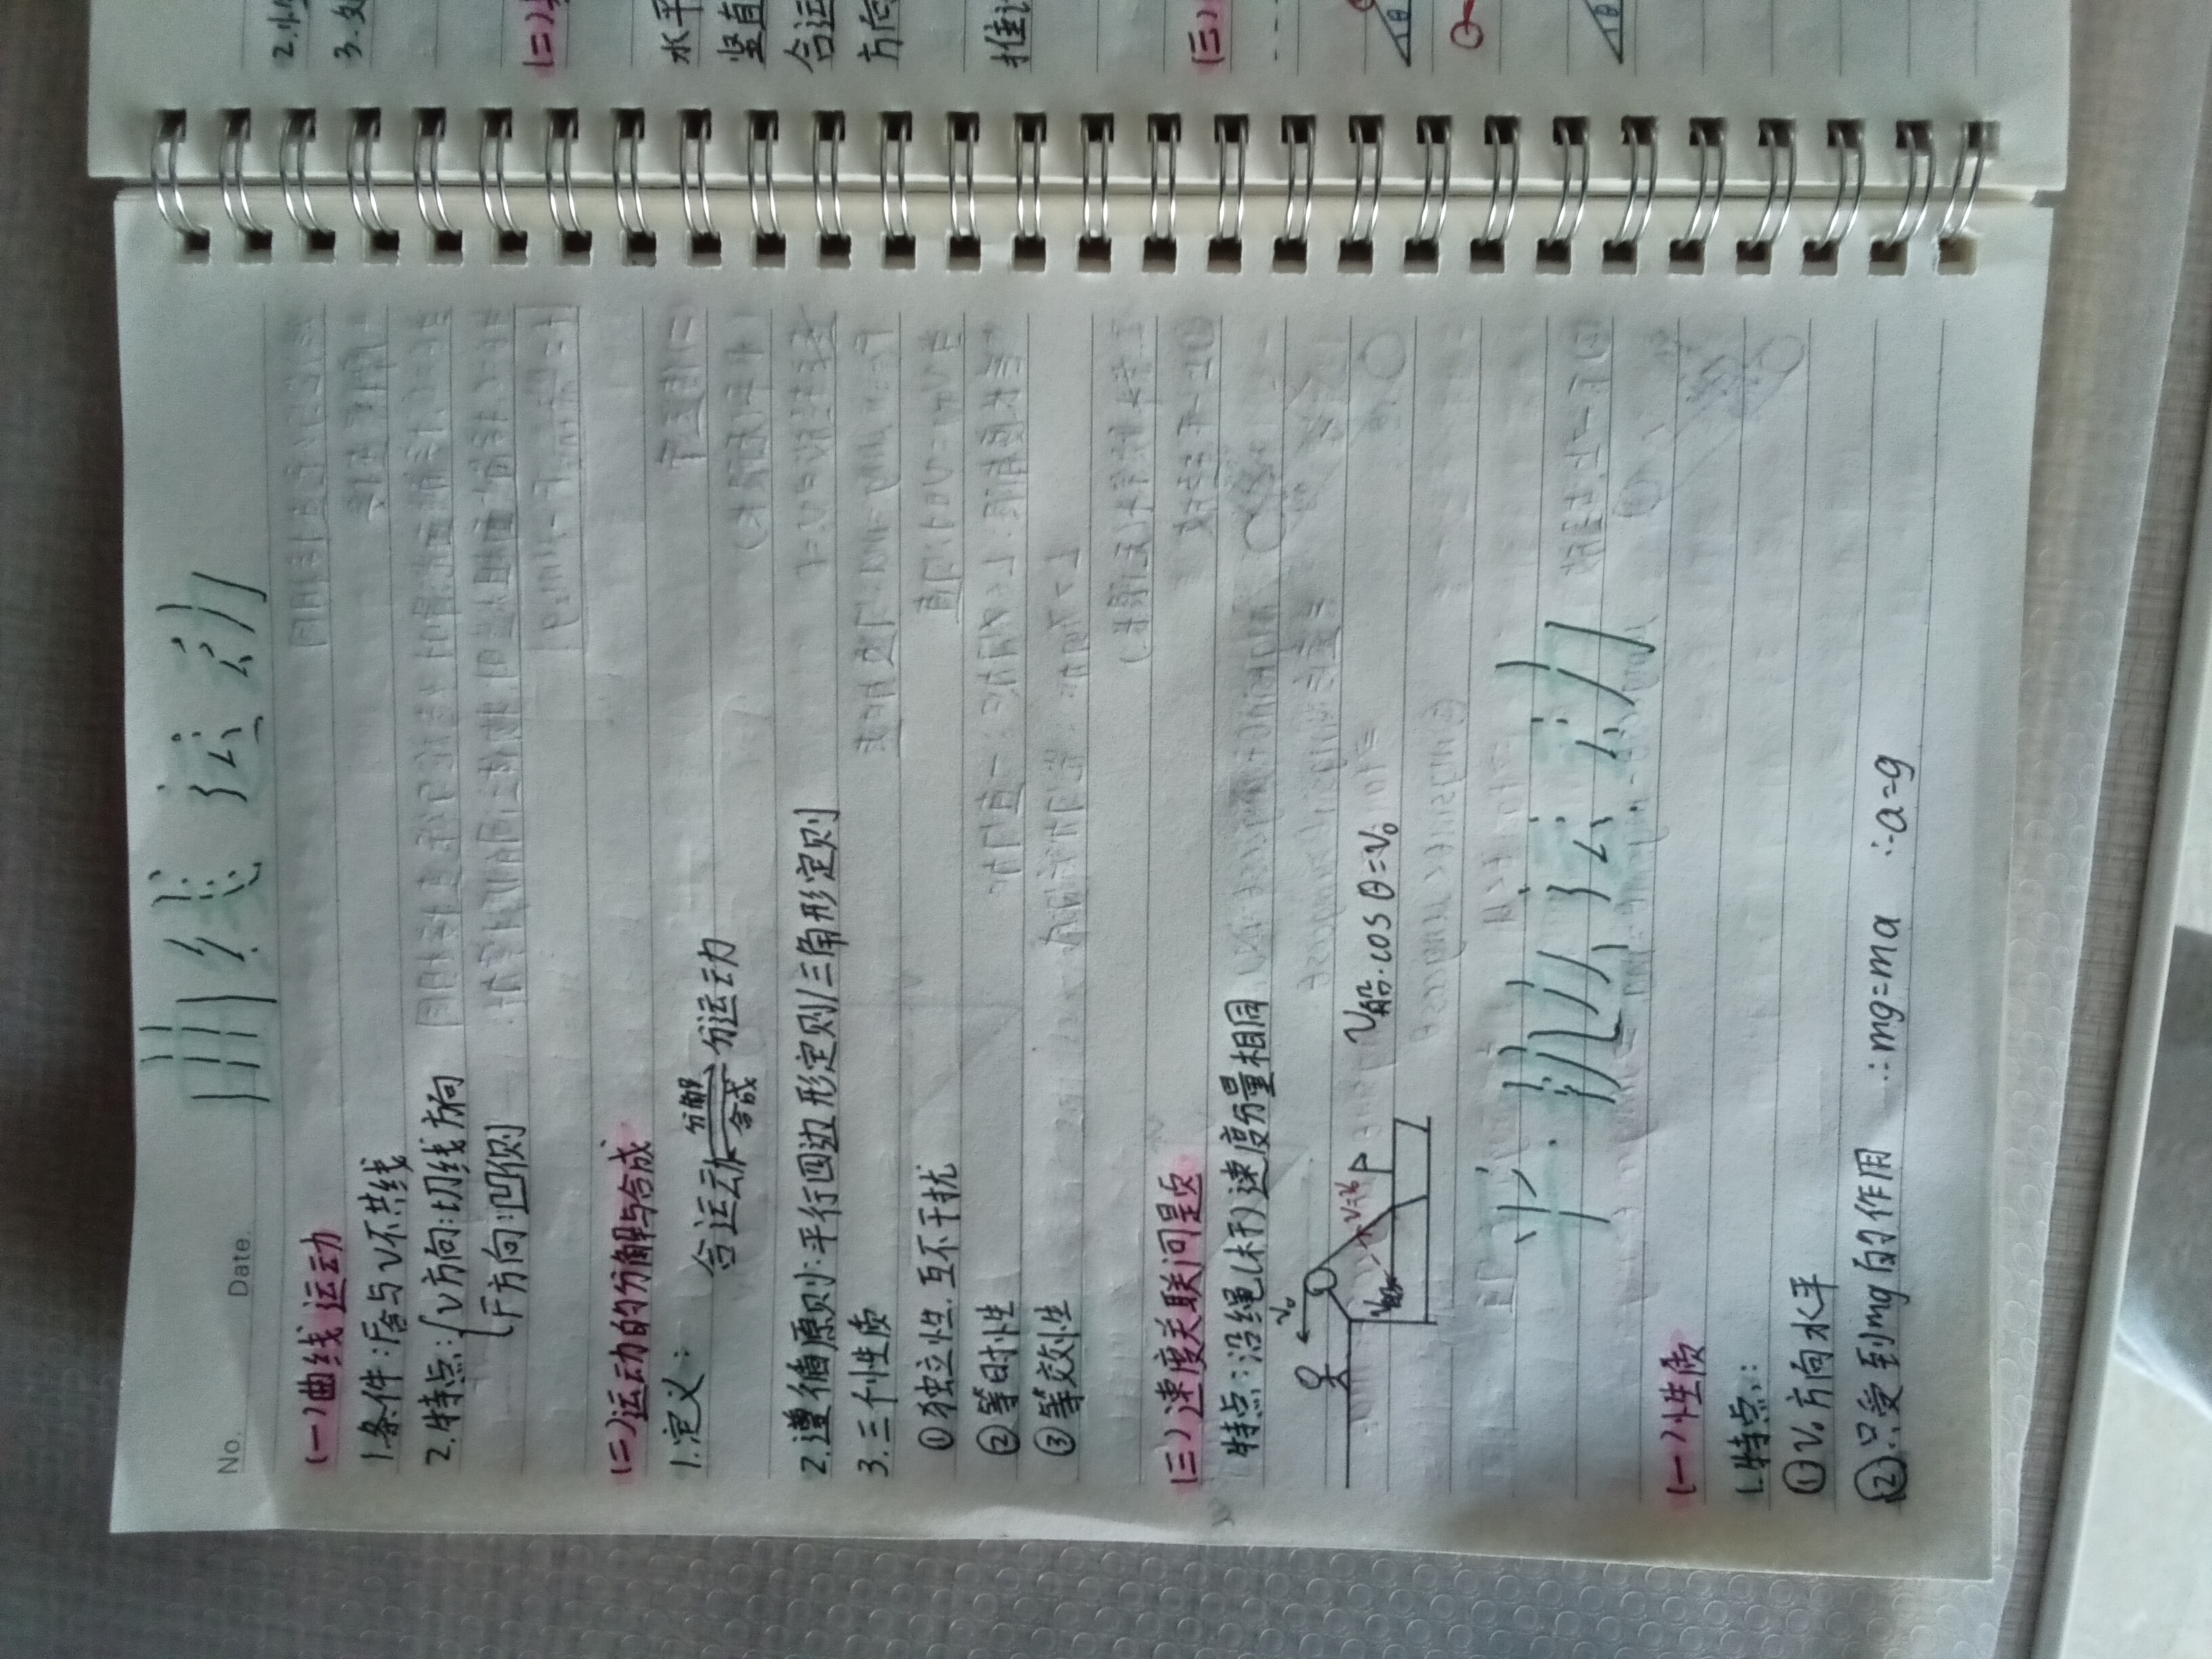 曲线运动
No.
Date.
(一)曲线运动
1.条件:F合与v不共线
2.特点:{v方向:切线方向
F方向:凹侧
(二)运动的分解与合成
1.定义:
合运动 分解 合成 分运动
2.遵循原则:平行四边形定则/三角形定则
3.三个性质
①独立性.互不干扰
②等时性
③等效性
(三)速度关联问题
特点:沿绳(杆)速度分量相同
v₀
v=v₀
v船·cosθ=v₀
平抛运动
(一)性质
1.特点:
①v₀方向水平
②∵只受到mg的作用 ∴mg=ma ∴a=g
2.
3.
(二)
水平
竖直
合运
方向
推
(三)
θ
θ